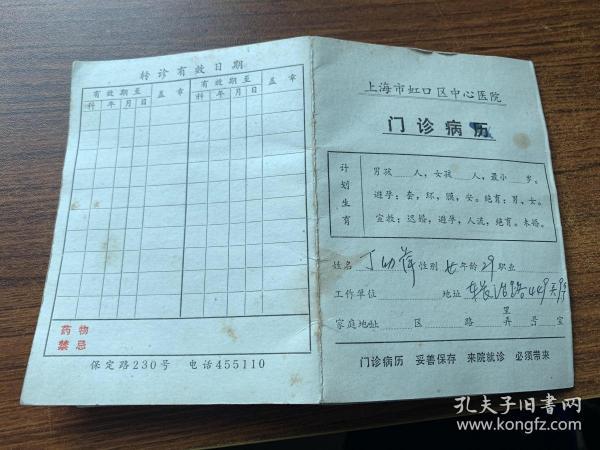 转诊有效日期
有效期至 盖章 有效期至 盖章
科 年 月 日 科 年 月 日
药物
禁忌
保定路230号 电话455110
上海市虹口区中心医院
门诊病历
计划生育
男孩 人，女孩 人，最小 岁。
避孕：套，环，膜，安。绝育：男，女。
宣教：迟婚，避孕，人流，绝育。未婚。
姓名 丁幼萍 性别 女 年龄 29 职业
工作单位 地址 东长治路449弄9号
家庭地址 区 路 里弄 号 室
门诊病历 妥善保存 来院就诊 必须带来
孔夫子旧书网
www.kongfz.com